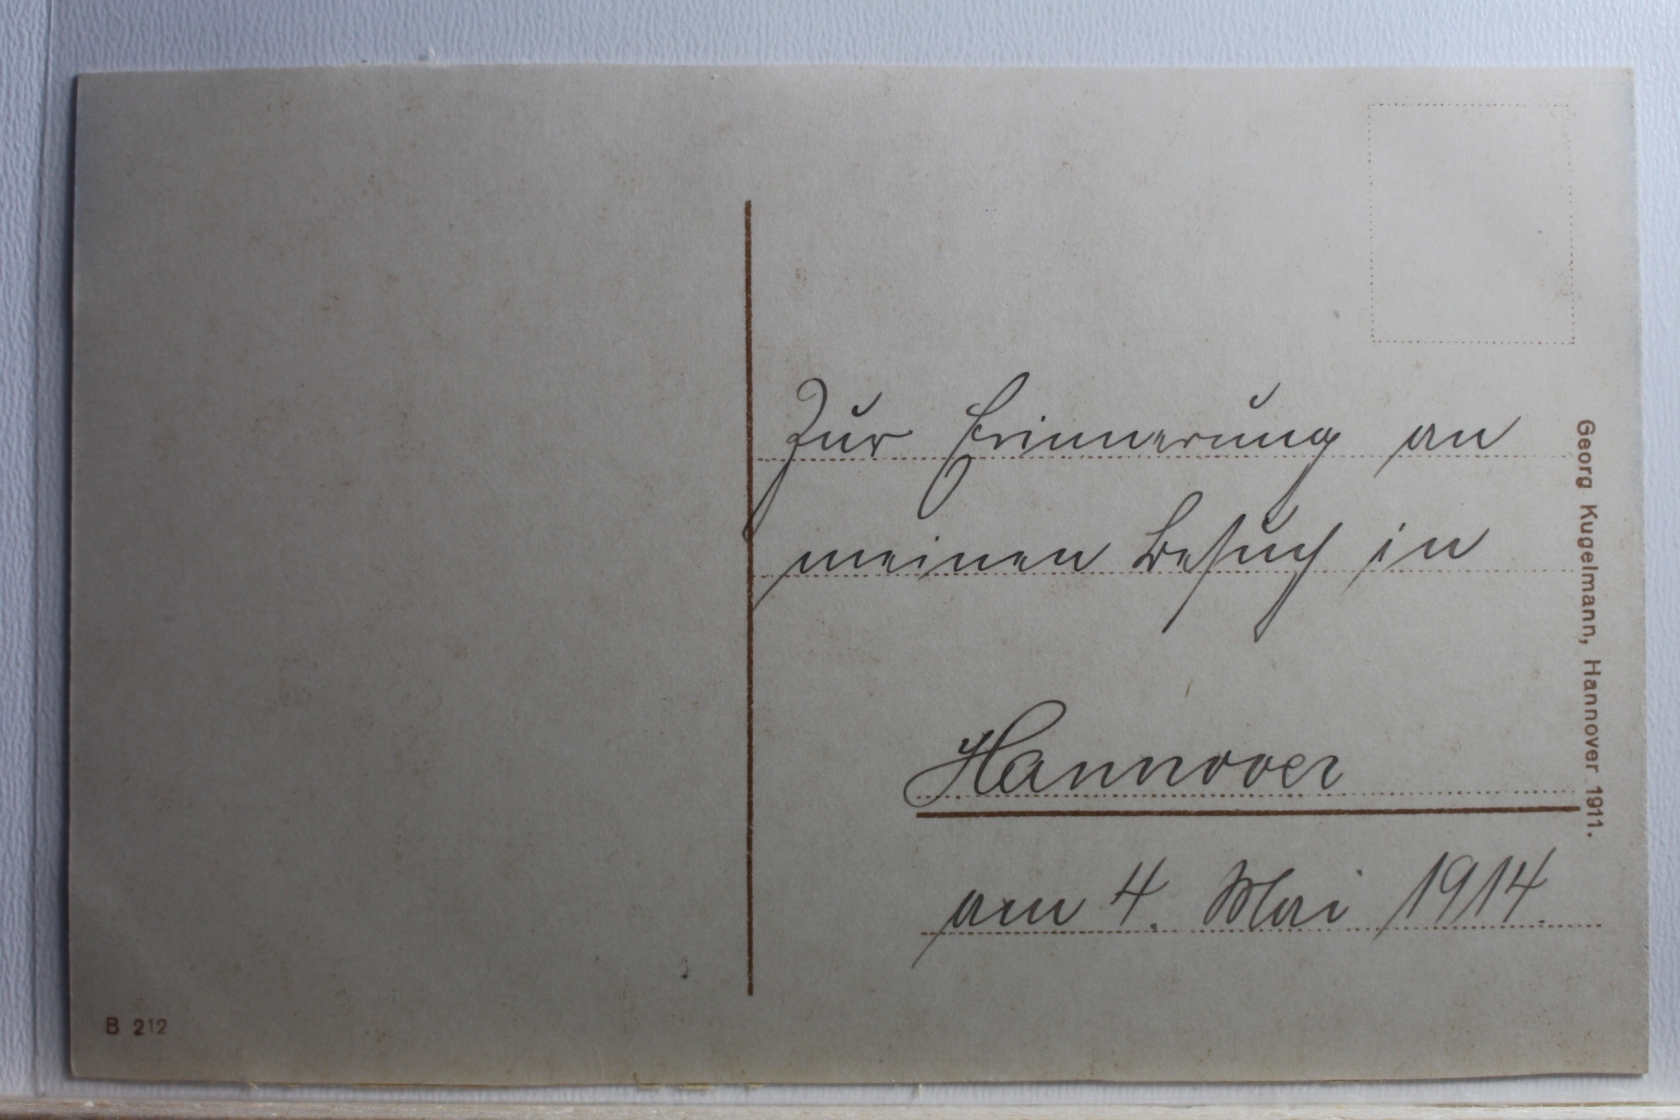 Zur Erinnerung an
meinen Besuch in
Hannover
am 4. Mai 1914.
Georg Kugelmann, Hannover 1911.
B 212